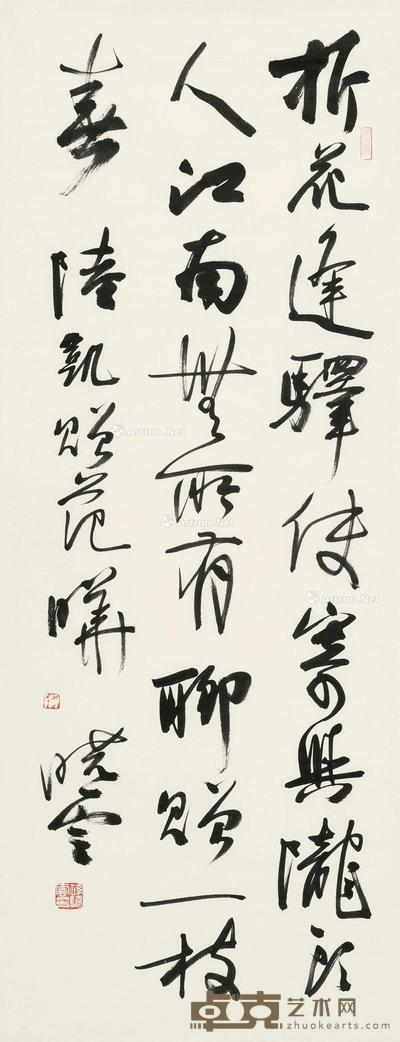 折花逢驛使寄與隴頭
人江南無所有聊贈一枝
春 陸凱贈范曄
曉雲
Artron.Net
Artron.Net
Artron.Net
Artron.Net
卓克艺术网
zhuokearts.com